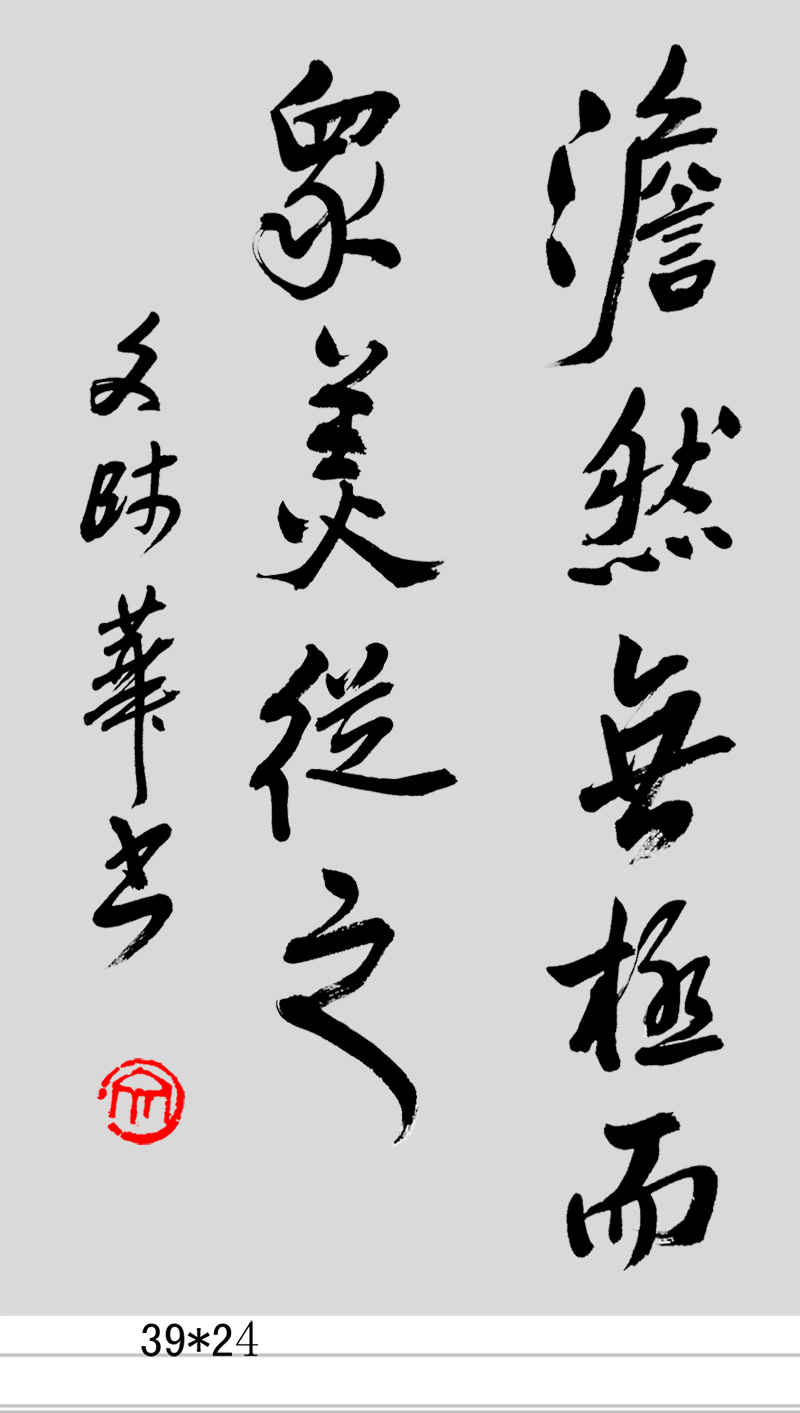 澹然無極而
眾美從之
文師華書
39*24